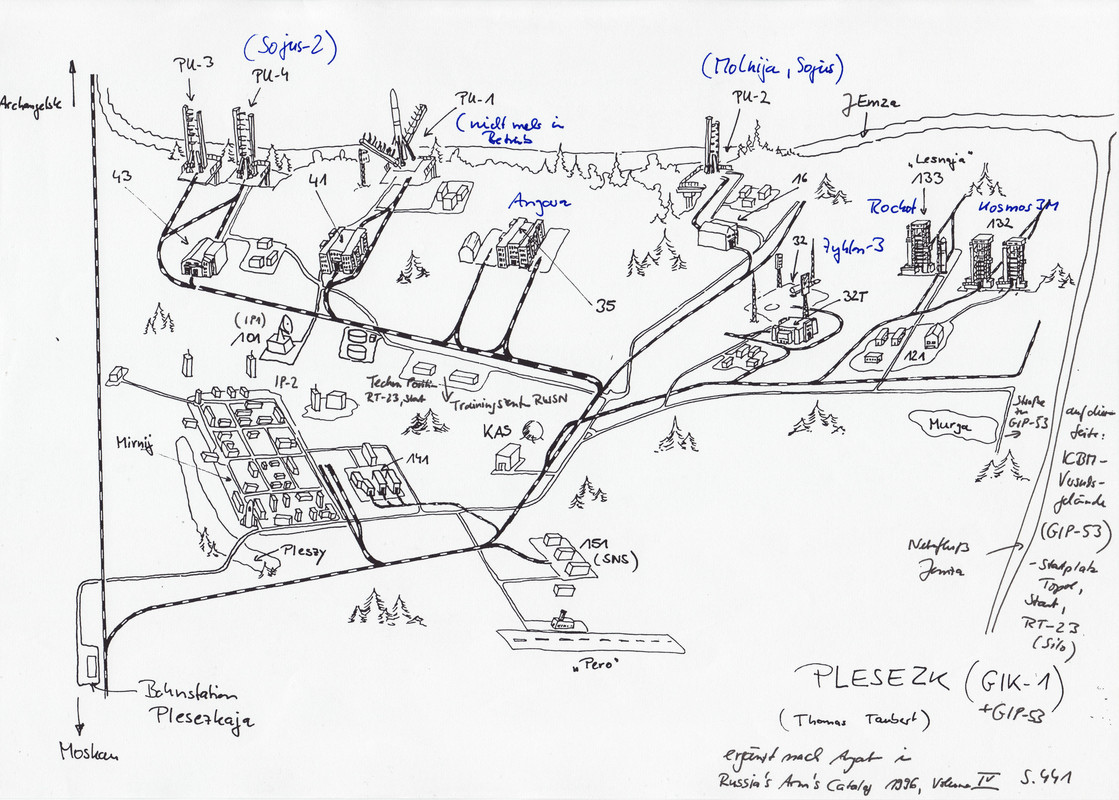 (Sojus-2)
PU-3
PU-4
Archangelsk
PU-1
(nicht mehr in
Betrieb
(Molnija, Sojus)
PU-2
Jemza
43
41
Angara
16
"Lesnaja"
133
Rockot
Kosmos 3M
132
32
Zyklon-3
32T
35
(IP1)
101
IP-2
Techn. Position
RT-23, Start
Trainingszentr. RWSN
121
Murga
Straße
zu
GIP-53
auf dieser
Seite:
ICBM-
Versuchs-
gelände
(GIP-53)
- Startplatz
Topol,
Start,
RT-23
(Silo)
KAS
Mirnij
141
Pleszy
151
(SNS)
Nebenfluß
Jemza
"Pero"
Bahnstation
Plesezkaja
Moskau
PLESEZK (GIK-1)
+GIP-53
(Thomas Taubert)
ergänzt nach Agat in
Russia's Arm's Catalog 1996, Volume IV S.441